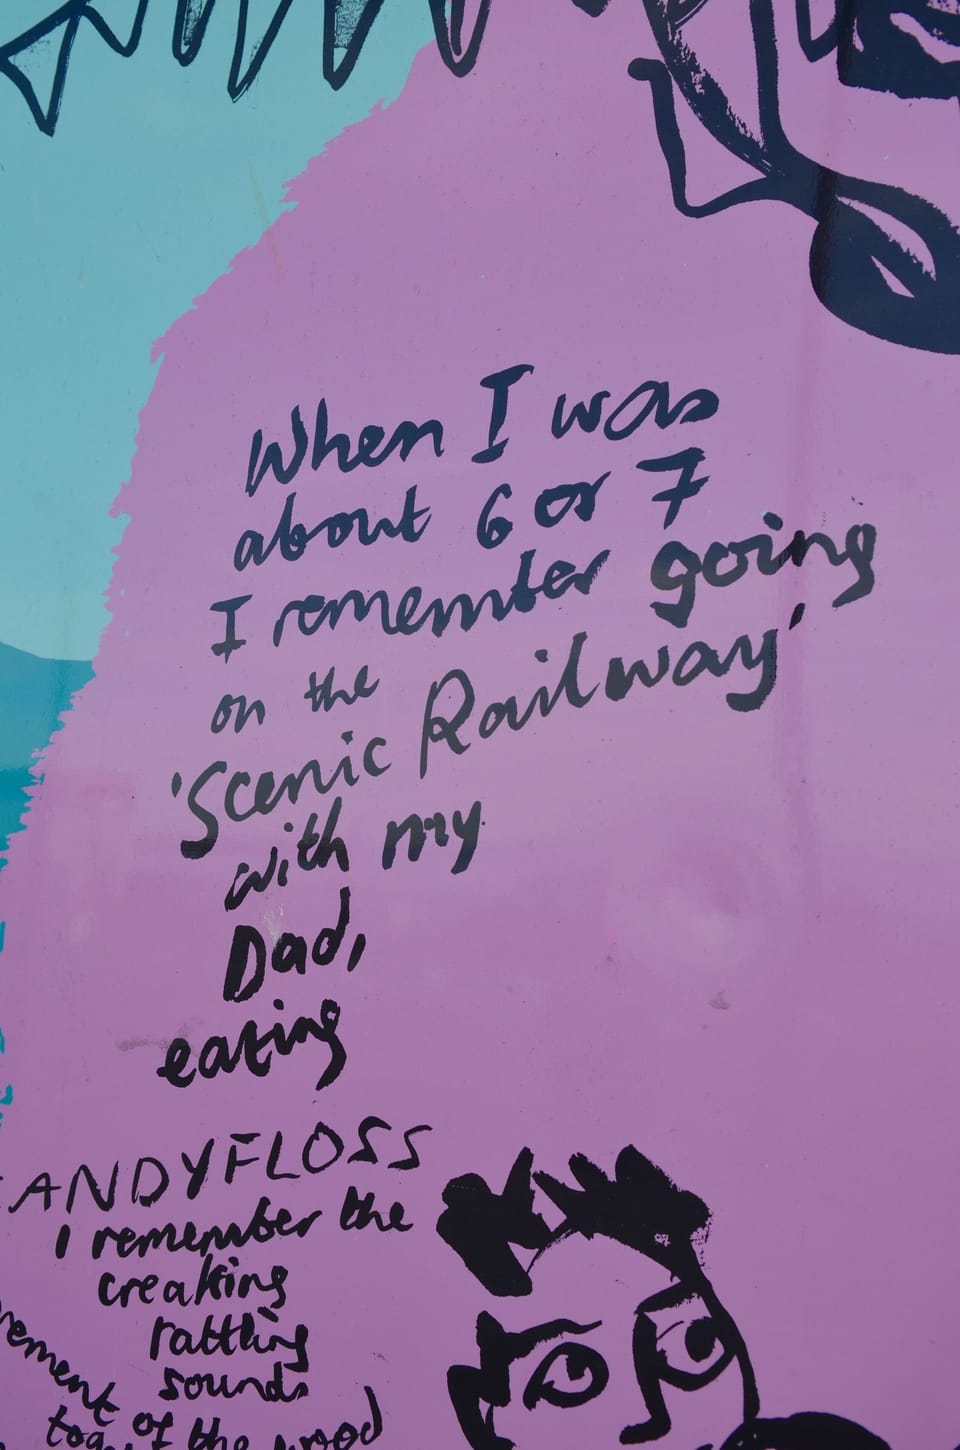 When I was
about 6 or 7
I remember going
on the
'Scenic Railway'
with my
Dad,
eating
ANDYFLOSS
I remember the
creaking
rattling
sounds
of the wood